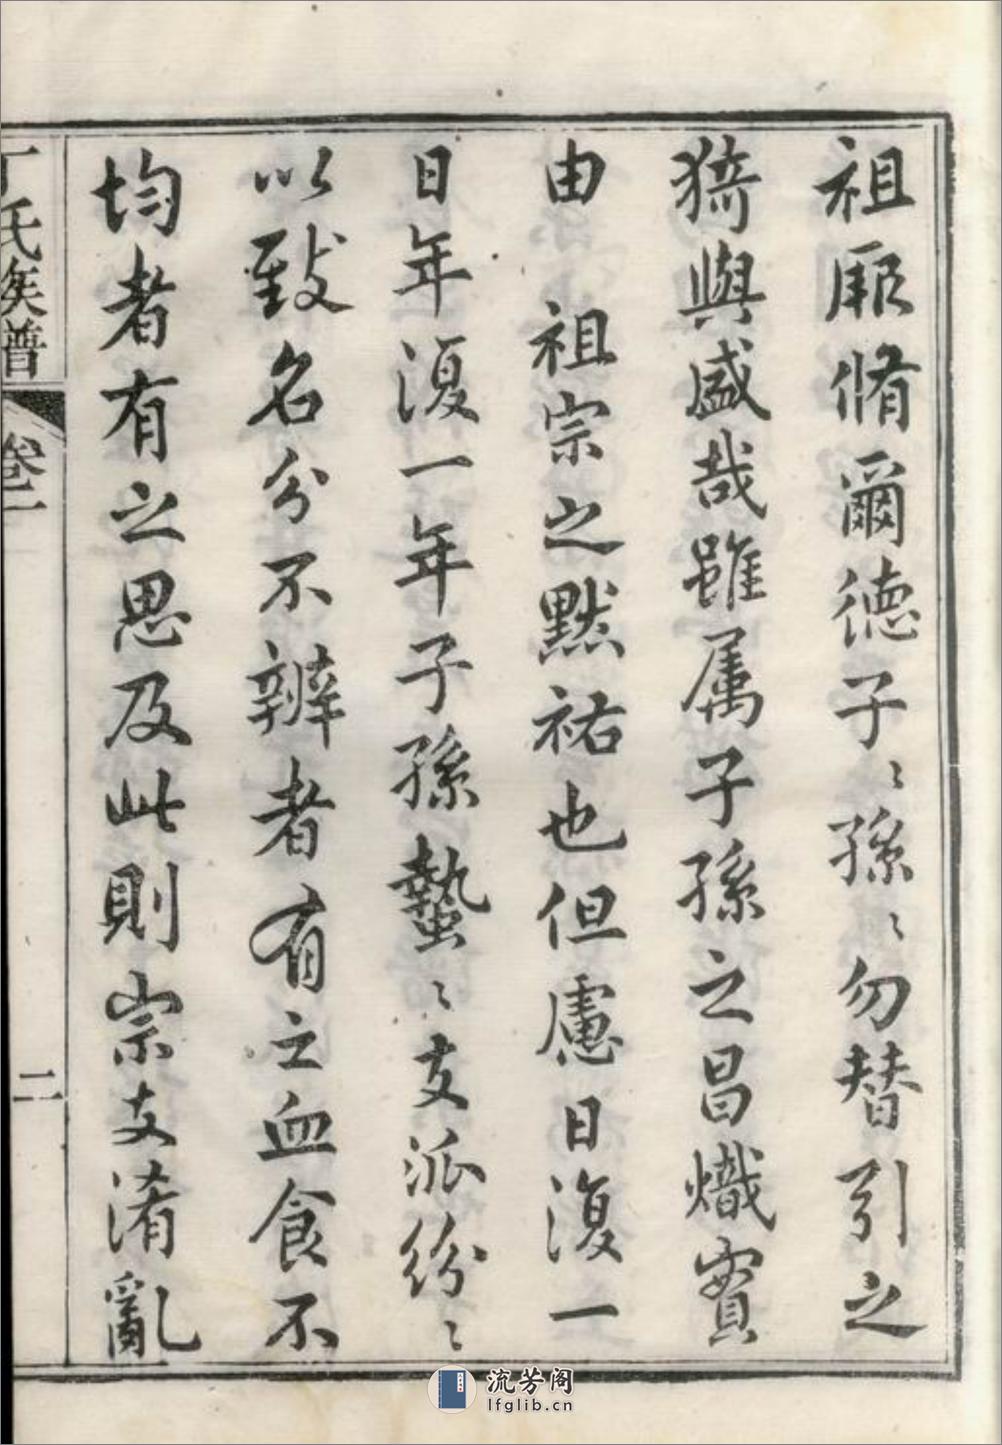 祖厥脩爾德子〻孫〻勿替引之
猗與盛哉雖属子孫之昌熾實
由　祖宗之默祐也但慮日復一
日年復一年子孫蟄〻支派紛〻
以致名分不辨者有之血食不
均者有之思及此則宗支淆亂
丁氏族普
卷二
二
流芳阁
lfglib.cn